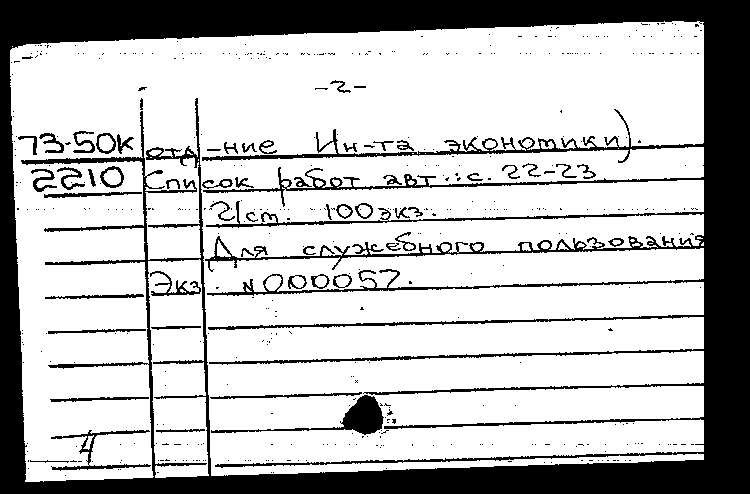 -2-
73-50к отд-ние Ин-та экономики).
2210 Список работ авт.: с. 22-23
2/ст. 100 экз.
Для служебного пользования
Экз. N 000057.
4